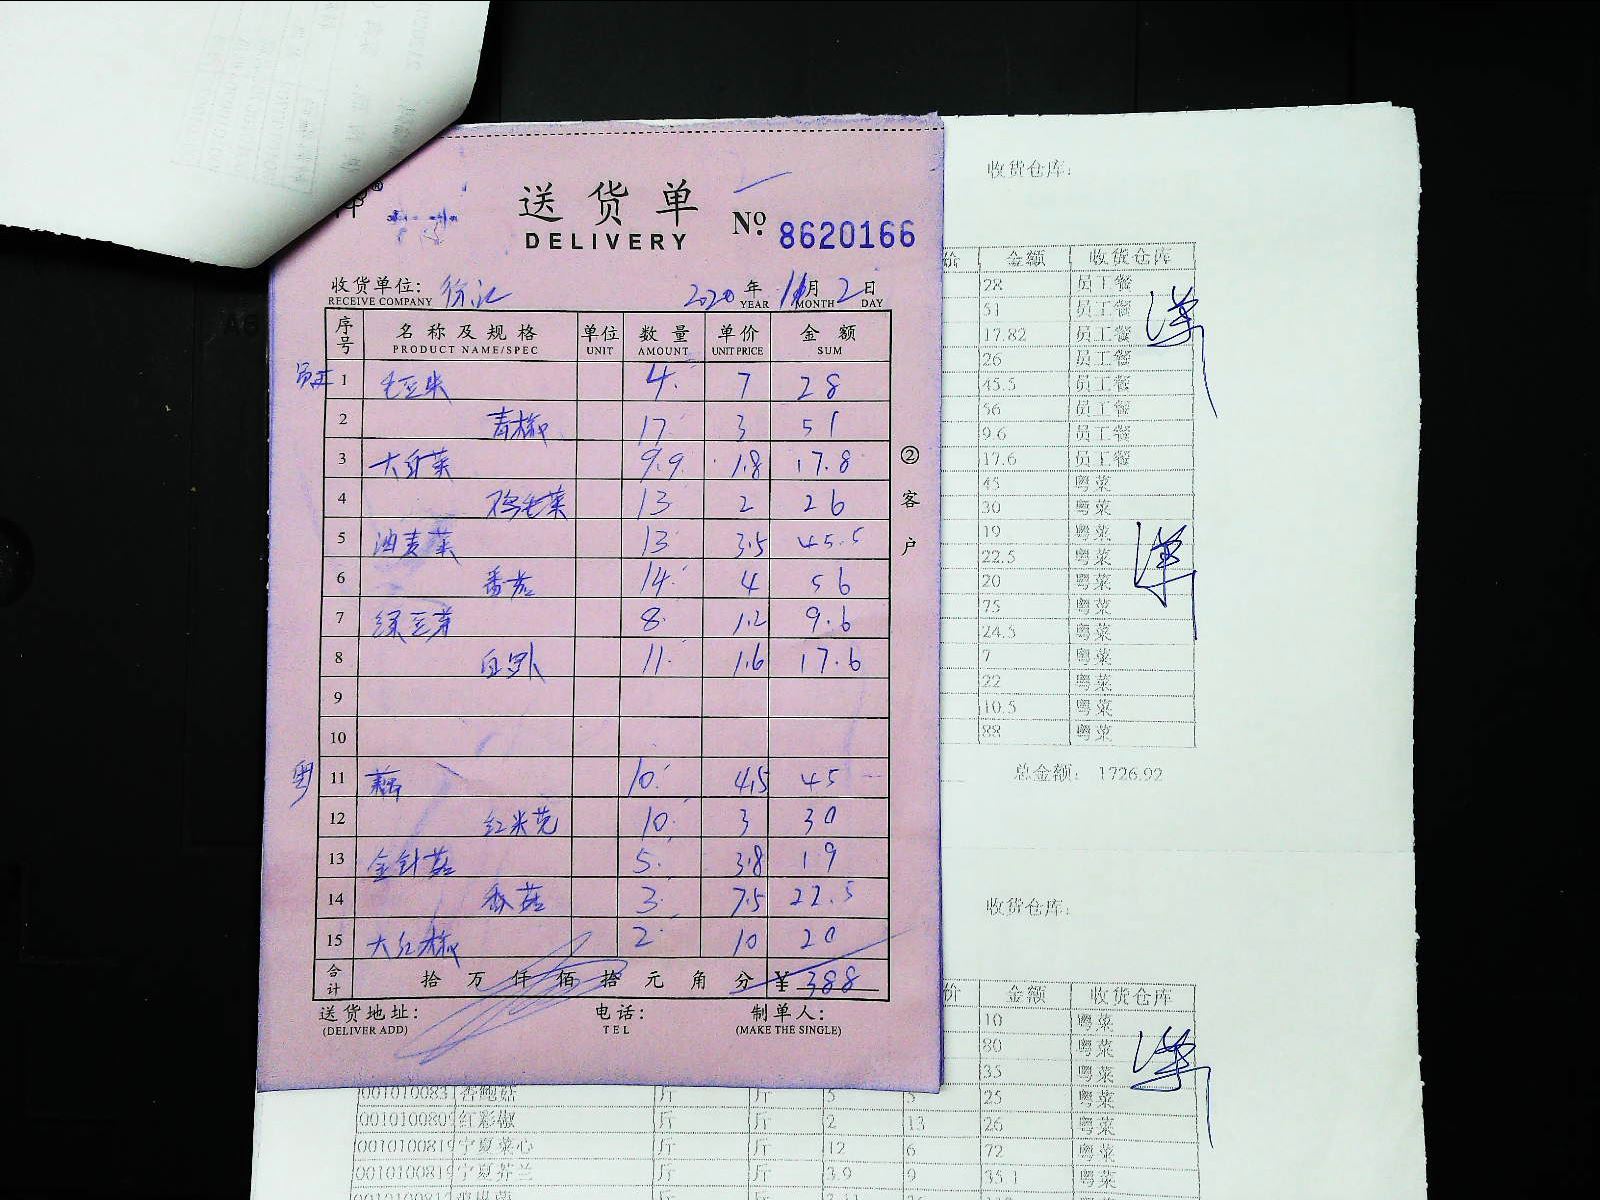 送货单
DELIVERY
№ 8620166
收货单位: 徐汇 2020年 11月 2日
RECEIVE COMPANY YEAR MONTH DAY
序号 名称及规格 单位 数量 单价 金额
PRODUCT NAME/SPEC UNIT AMOUNT UNIT PRICE SUM
1 毛豆米 4 7 28
2 青椒 17 3 51
3 大白菜 9.9 1.8 17.8
4 鸡毛菜 13 2 26
5 油麦菜 13 3.5 45.5
6 番茄 14 4 56
7 绿豆芽 8 1.2 9.6
8 白萝卜 11 1.6 17.6
9
10
粤 11 藕 10 4.5 45
12 红米苋 10 3 30
13 金针菇 5 3.8 19
14 香菇 3 7.5 22.5
15 大红椒 2 10 20
合计 拾 万 仟 佰 拾 元 角 分 ¥ 388
送货地址: 电话: 制单人:
(DELIVER ADD) TEL (MAKE THE SINGLE)
②客户
收货仓库:
价 金额 收货仓库
28 员工餐
51 员工餐
17.82 员工餐
26 员工餐
45.5 员工餐
56 员工餐
9.6 员工餐
17.6 员工餐
45 粤菜
30 粤菜
19 粤菜
22.5 粤菜
20 粤菜
75 粤菜
24.5 粤菜
7 粤菜
22 粤菜
10.5 粤菜
88 粤菜
总金额: 1726.92
收货仓库:
价 金额 收货仓库
10 粤菜
80 粤菜
35 粤菜
杏鲍菇 斤 斤 5 5 25 粤菜
红彩椒 斤 斤 2 13 26 粤菜
宁夏菜心 斤 斤 12 6 72 粤菜
宁夏芥兰 斤 斤 3.9 9 35.1 粤菜